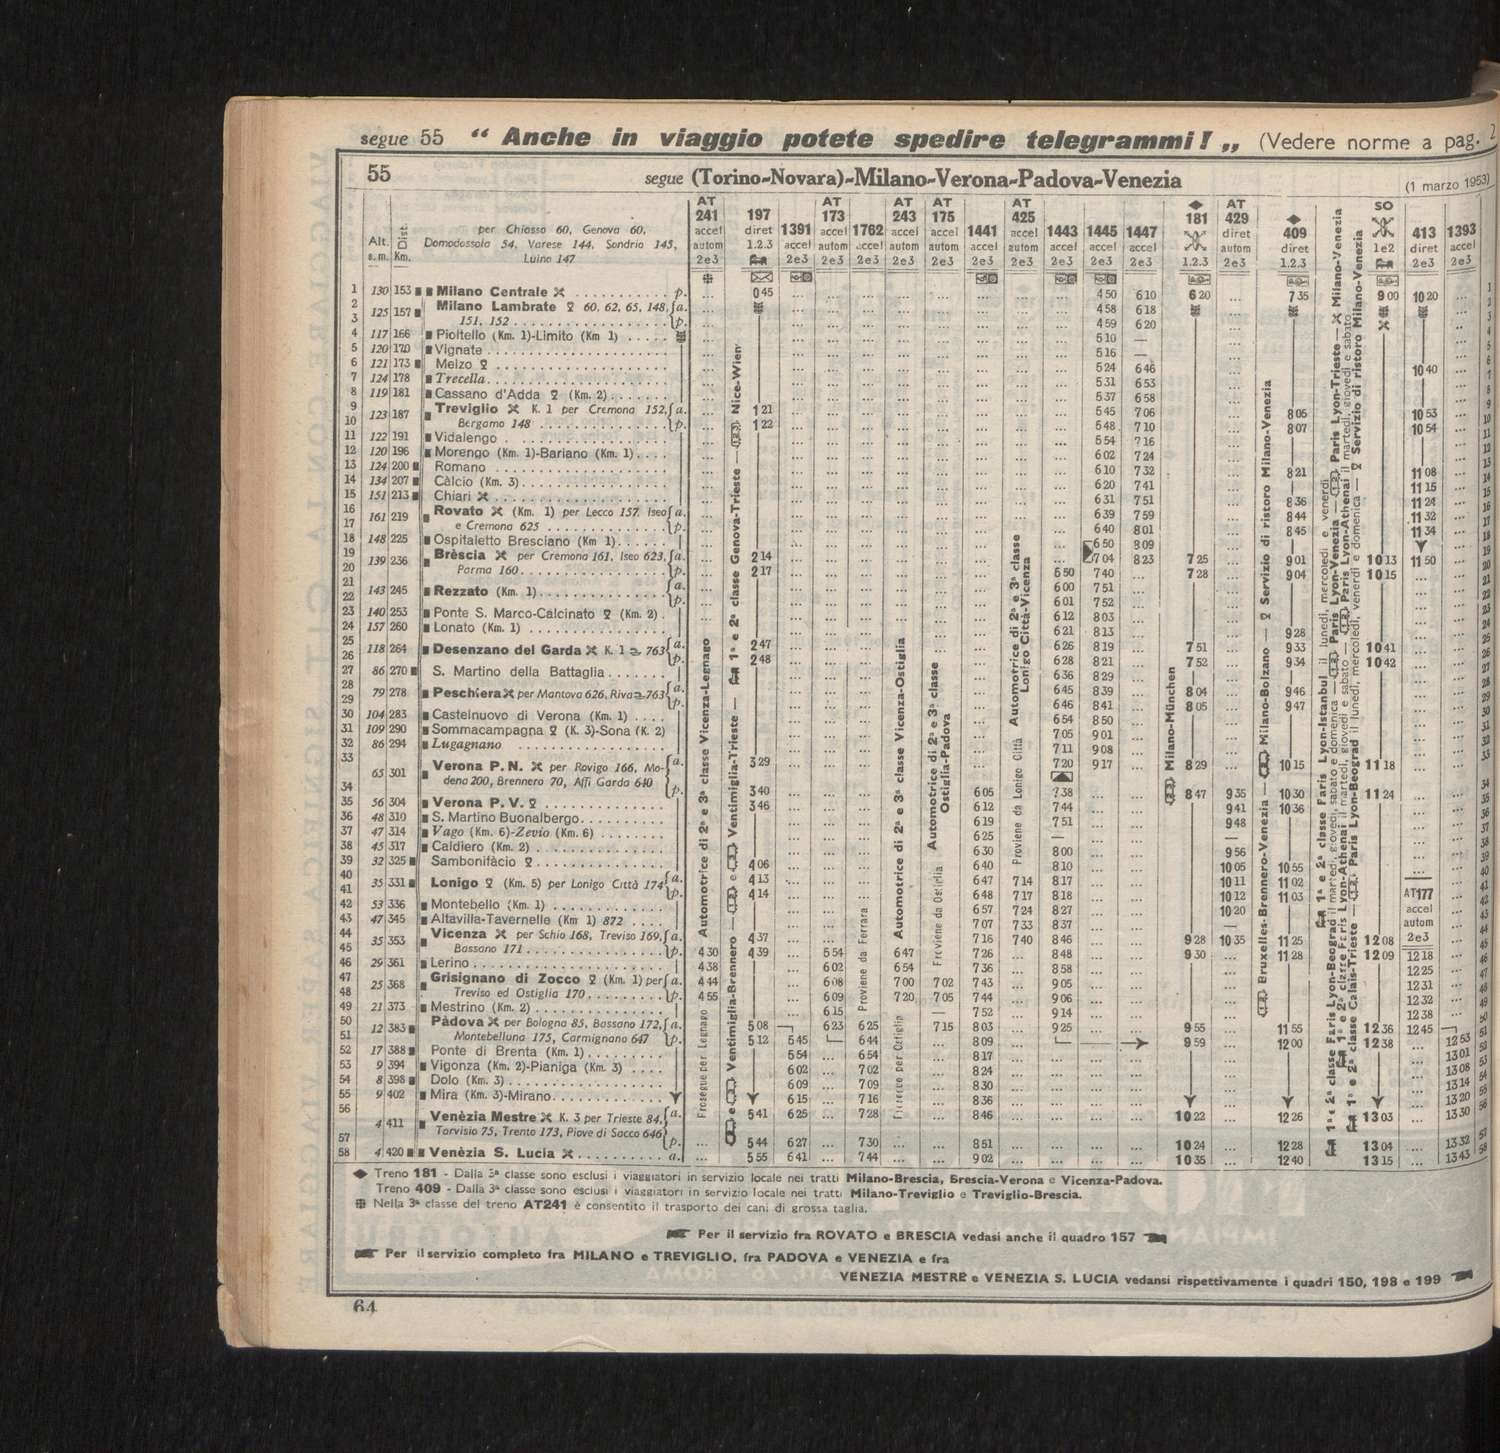 segue 55 “ Anche in viaggio potete spedire telegrammi! „ (Vedere norme a pag. 2
55 segue (Torino-Novara)-Milano-Verona-Padova-Venezia (1 marzo 1953)
Alt. s. m.
Dist. Km.
per Chiasso 60, Genova 60,
Domodossola 54, Varese 144, Sondrio 145,
Luino 147
AT 241 accel autom 2e3
197 diret 1.2.3
1391 accel 2e3
AT 173 accel autom 2e3
1762 accel 2e3
AT 243 accel autom 2e3
AT 175 accel autom 2e3
1441 accel 2e3
AT 425 accel autom 2e3
1443 accel 2e3
1445 accel 2e3
1447 accel 2e3
181 1.2.3
AT 429 diret autom 2e3
409 diret 1.2.3
SO 1e2
413 diret 2e3
1393 accel 2e3
1 130 153 Milano Centrale . . . p. ... 0 45 ... 4 50 6 10 6 20 ... 7 35 9 00 10 20
2 125 157 Milano Lambrate 60, 62, 65, 148, a. 4 58 6 18
3 151, 152 . . . p. 4 59 6 20
4 117 166 Pioltello (Km. 1)-Limito (Km 1) 5 10 —
5 120 170 Vignate 5 16 —
6 121 173 Melzo 5 24 6 46 10 40
7 124 178 Trecella 5 31 6 53
8 119 181 Cassano d'Adda (Km. 2) 5 37 6 58
9 123 187 Treviglio K. 1 per Cremona 152, a. 1 21 5 45 7 06 8 05 10 53
10 Bergamo 148 p. 1 22 5 48 7 10 8 07 10 54
11 122 191 Vidalengo 5 54 7 16
12 120 196 Morengo (Km. 1)-Bariano (Km. 1) 6 02 7 24
13 124 200 Romano 6 10 7 32 8 21 11 08
14 134 207 Càlcio (Km. 3) 6 20 7 41 11 15
15 151 213 Chiari 6 31 7 51 8 36 11 24
16 161 219 Rovato (Km. 1) per Lecco 157, Iseo a. 6 39 7 59 8 44 11 32
17 e Cremona 625 p. 6 40 8 01 8 45 11 34
18 148 225 Ospitaletto Bresciano (Km 1) 6 50 8 09
19 139 236 Brèscia per Cremona 161, Iseo 623, a. 2 14 7 04 8 23 7 25 9 01 10 13 11 50
20 Parma 160 p. 2 17 6 50 7 40 7 28 9 04 10 15
21 143 245 Rezzato (Km. 1) a. 6 00 7 51
22 p. 6 01 7 52
23 140 253 Ponte S. Marco-Calcinato (Km. 2) 6 12 8 03
24 157 260 Lonato (Km. 1) 6 21 8 13 9 28
25 118 264 Desenzano del Garda K. 1 763 a. 2 47 6 26 8 19 7 51 9 33 10 41
26 p. 2 48 6 28 8 21 7 52 9 34 10 42
27 86 270 S. Martino della Battaglia 6 36 8 29
28 79 278 Peschiera per Mantova 626, Riva 763 a. 6 45 8 39 8 04 9 46
29 p. 6 46 8 41 8 05 9 47
30 104 283 Castelnuovo di Verona (Km. 1) 6 54 8 50
31 109 290 Sommacampagna (K. 3)-Sona (K. 2) 7 05 9 01
32 86 294 Lugagnano 7 11 9 08
33 65 301 Verona P. N. per Rovigo 166, Modena 200, Brennero 70, Affi Garda 640 a. 3 29 7 20 9 17 8 29 10 15 11 18
34 p. 3 40 6 05 7 38 8 47 9 35 10 30 11 24
35 56 304 Verona P. V. 3 46 6 12 7 44 9 41 10 36
36 48 310 S. Martino Buonalbergo 6 19 7 51 9 48
37 47 314 Vago (Km. 6)-Zevio (Km. 6) 6 25 — —
38 45 317 Caldiero (Km. 2) 6 30 8 00 9 56
39 32 325 Sambonifàcio 4 06 6 40 8 10 10 05 10 55
40 35 331 Lonigo (Km. 5) per Lonigo Città 174 a. 4 13 6 47 7 14 8 17 10 11 11 02
41 p. 4 14 6 48 7 17 8 18 10 12 11 03
42 53 336 Montebello (Km. 1) 6 57 7 24 8 27 10 20
43 47 345 Altavilla-Tavernelle (Km 1) 872 7 07 7 33 8 37
44 35 353 Vicenza per Schio 168, Treviso 169, a. 4 37 7 16 7 40 8 46 9 28 10 35 11 25 12 08
AT177 accel autom 2e3
45 Bassano 171 p. 4 30 4 39 5 54 6 47 7 26 8 48 9 30 11 28 12 09 12 18
46 29 361 Lerino 4 38 6 02 6 54 7 36 8 58 12 25
47 25 368 Grisignano di Zocco (Km. 1) per a. 4 44 6 08 7 00 7 02 7 43 9 05 12 31
48 Treviso ed Ostiglia 170 p. 4 55 6 09 7 20 7 05 7 44 9 06 12 32
49 21 373 Mestrino (Km. 2) 6 15 — 7 52 9 14 12 38
50 12 383 Pàdova per Bologna 85, Bassano 172, a. 5 08 6 23 6 25 7 15 8 03 9 25 9 55 11 55 12 36 12 45
51 Montebelluna 175, Carmignano 647 p. 5 12 5 45 6 44 8 09 9 59 12 00 12 38 12 53
52 17 388 Ponte di Brenta (Km. 1) 5 54 6 54 8 17 13 01
53 9 394 Vigonza (Km. 2)-Pianiga (Km. 3) 6 02 7 02 8 24 13 08
54 8 398 Dolo (Km. 3) 6 09 7 09 8 30 13 14
55 9 402 Mira (Km. 3)-Mirano 6 15 7 16 8 36 13 20
56 4 411 Venèzia Mestre K. 3 per Trieste 84, Tarvisio 75, Trento 173, Piove di Sacco 646 a. 5 41 6 25 7 28 8 46 10 22 12 26 13 03 13 30
57 p. 5 44 6 27 7 30 8 51 10 24 12 28 13 04 13 32
58 4 420 Venèzia S. Lucia a. 5 55 6 41 7 44 9 02 10 35 12 40 13 15 13 43
Automotrice di 2ª e 3ª classe Vicenza-Legnago
Prosegue per Legnago
Nice-Wien
1ª e 2ª classe Genova-Trieste
Ventimiglia-Trieste
e Ventimiglia-Brennero
Proviene da Ferrara
Automotrice di 2ª e 3ª classe Vicenza-Ostiglia
Automotrice di 2ª e 3ª classe Ostiglia-Padova
Proviene da Ostiglia
Automotrice di 2ª e 3ª classe Lonigo Città-Vicenza
Proviene da Lonigo Città
Milano-München
Bruxelles-Brennero-Venezia — Milano-Bolzano — Servizio di ristoro Milano-Venezia
Milano-Venezia
Servizio di ristoro Milano-Venezia
Treno 181 - Dalla 3ª classe sono esclusi i viaggiatori in servizio locale nei tratti Milano-Brescia, Brescia-Verona e Vicenza-Padova.
Treno 409 - Dalla 3ª classe sono esclusi i viaggiatori in servizio locale nei tratti Milano-Treviglio e Treviglio-Brescia.
Nella 3ª classe del treno AT241 è consentito il trasporto dei cani di grossa taglia.
Per il servizio fra ROVATO e BRESCIA vedasi anche il quadro 157
Per il servizio completo fra MILANO e TREVIGLIO, fra PADOVA e VENEZIA e fra
VENEZIA MESTRE e VENEZIA S. LUCIA vedansi rispettivamente i quadri 150, 198 e 199
64